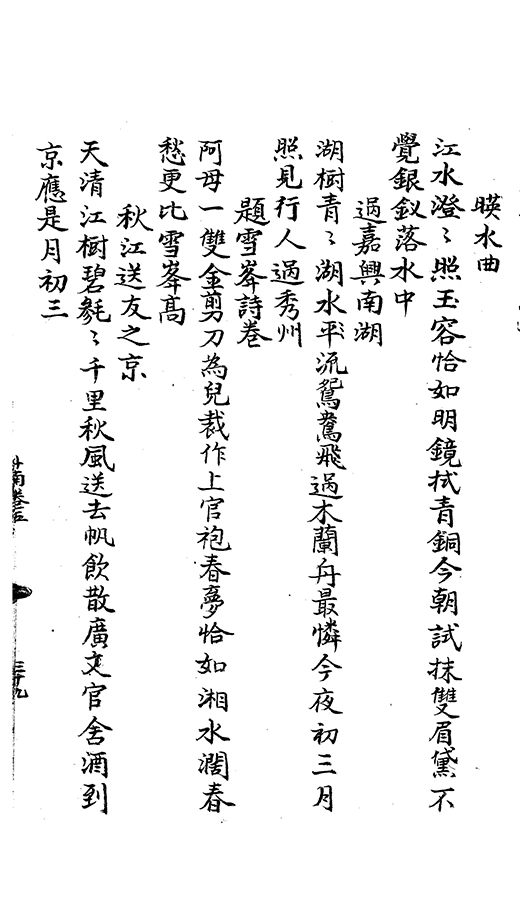 暎水曲
江水澄〻照玉容恰如明鏡拭青銅今朝試抹雙眉黛不
覺銀釵落水中
過嘉興南湖
湖樹青〻湖水平流鴛鴦飛過木蘭舟最憐今夜初三月
照見行人過秀州
題雪峯詩卷
阿母一雙金剪刀為兒裁作上官袍春夢恰如湘水濶春
愁更比雪峯髙
秋江送友之京
天清江樹碧毿〻千里秋風送去帆飲散廣文官舍酒到
京應是月初三
三十九